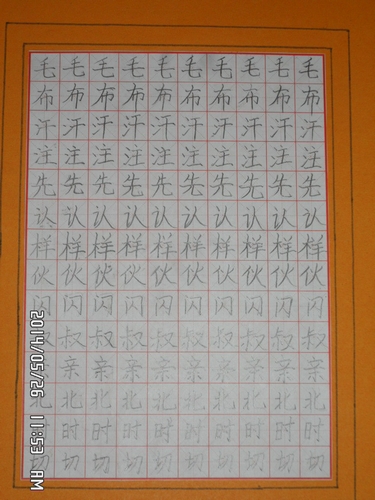 毛毛毛毛毛毛毛毛毛毛
布布布布布布布布布布
汗汗汗汗汗汗汗汗汗汗
注注注注注注注注注注
先先先先先先先先先先
认认认认认认认认认认
样样样样样样样样样样
伙伙伙伙伙伙伙伙伙伙
闪闪闪闪闪闪闪闪闪闪
叔叔叔叔叔叔叔叔叔叔
亲亲亲亲亲亲亲亲亲亲
北北北北北北北北北北
时时时时时时时时时时
切切切切切切切切切切
2014/05/26 11:53 AM